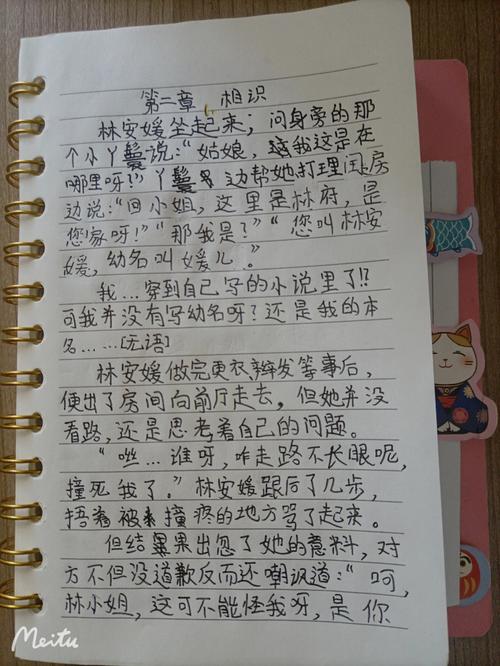 第二章、相识
林安媛坐起来，问身旁的那
个小丫鬟说：“姑娘，我这是在
哪里呀？”丫鬟边帮她打理闺房
边说：“回小姐，这里是林府，是
您家呀！”“那我是？”“您叫林安
媛，幼名叫媛儿。”
我…穿到自己写的小说里了!?
可我并没有写幼名呀？还是我的本
名……[无语]
林安媛做完更衣辫发等事后，
便出了房间向前厅走去，但她并没
看路，还是思考着自己的问题。
“咝…谁呀，咋走路不长眼呢，
撞死我了。”林安媛跟后了几步，
捂着被撞疼的地方骂了起来。
但结果出忽了她的意料，对
方不但没道歉反而还嘲讽道：“呵，
林小姐，这可不能怪我呀，是你
Meitu